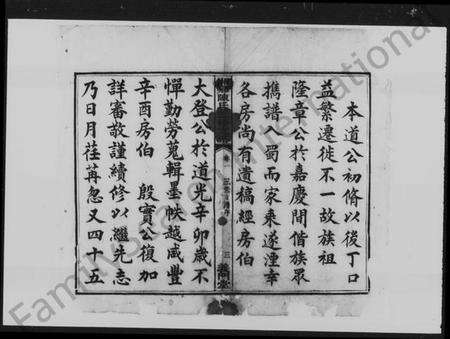 本道公初脩以後丁口
益繁遷徙不一故族祖
隆章公於嘉慶間偕族眾
攜譜入蜀而家乘遂湮幸
各房尚有遺稿經房伯
大登公於道光辛卯歲不
憚勤勞蒐輯墨帙越咸豐
辛酉房伯 殷實公復加
詳審敬謹續修以繼先志
乃日月荏苒忽又四十五
陳氏
卷一
三
FamilySearch International